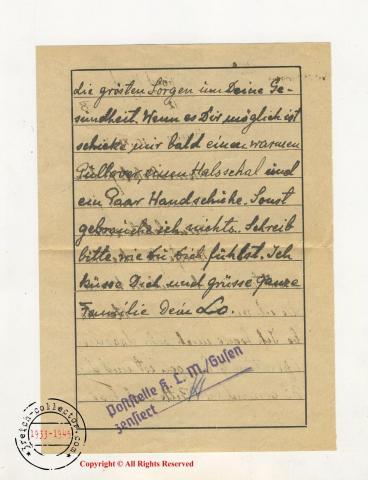 die grösten Sorgen um Deine Ge-
sundheit. Wenn es Dir möglich ist
schicke mir bald einen warmen
Pullover, einen Halsschal und
ein Paar Handschuhe. Sonst
gebrauche ich nichts. Schreib
bitte, wie du dich fühlst. Ich
küsse Dich und grüsse ganze
Familie Dein Lo.
Poststelle K. L. M./Gusen
zensiert
3reich-collector.com
1933-1945
Copyright © All Rights Reserved